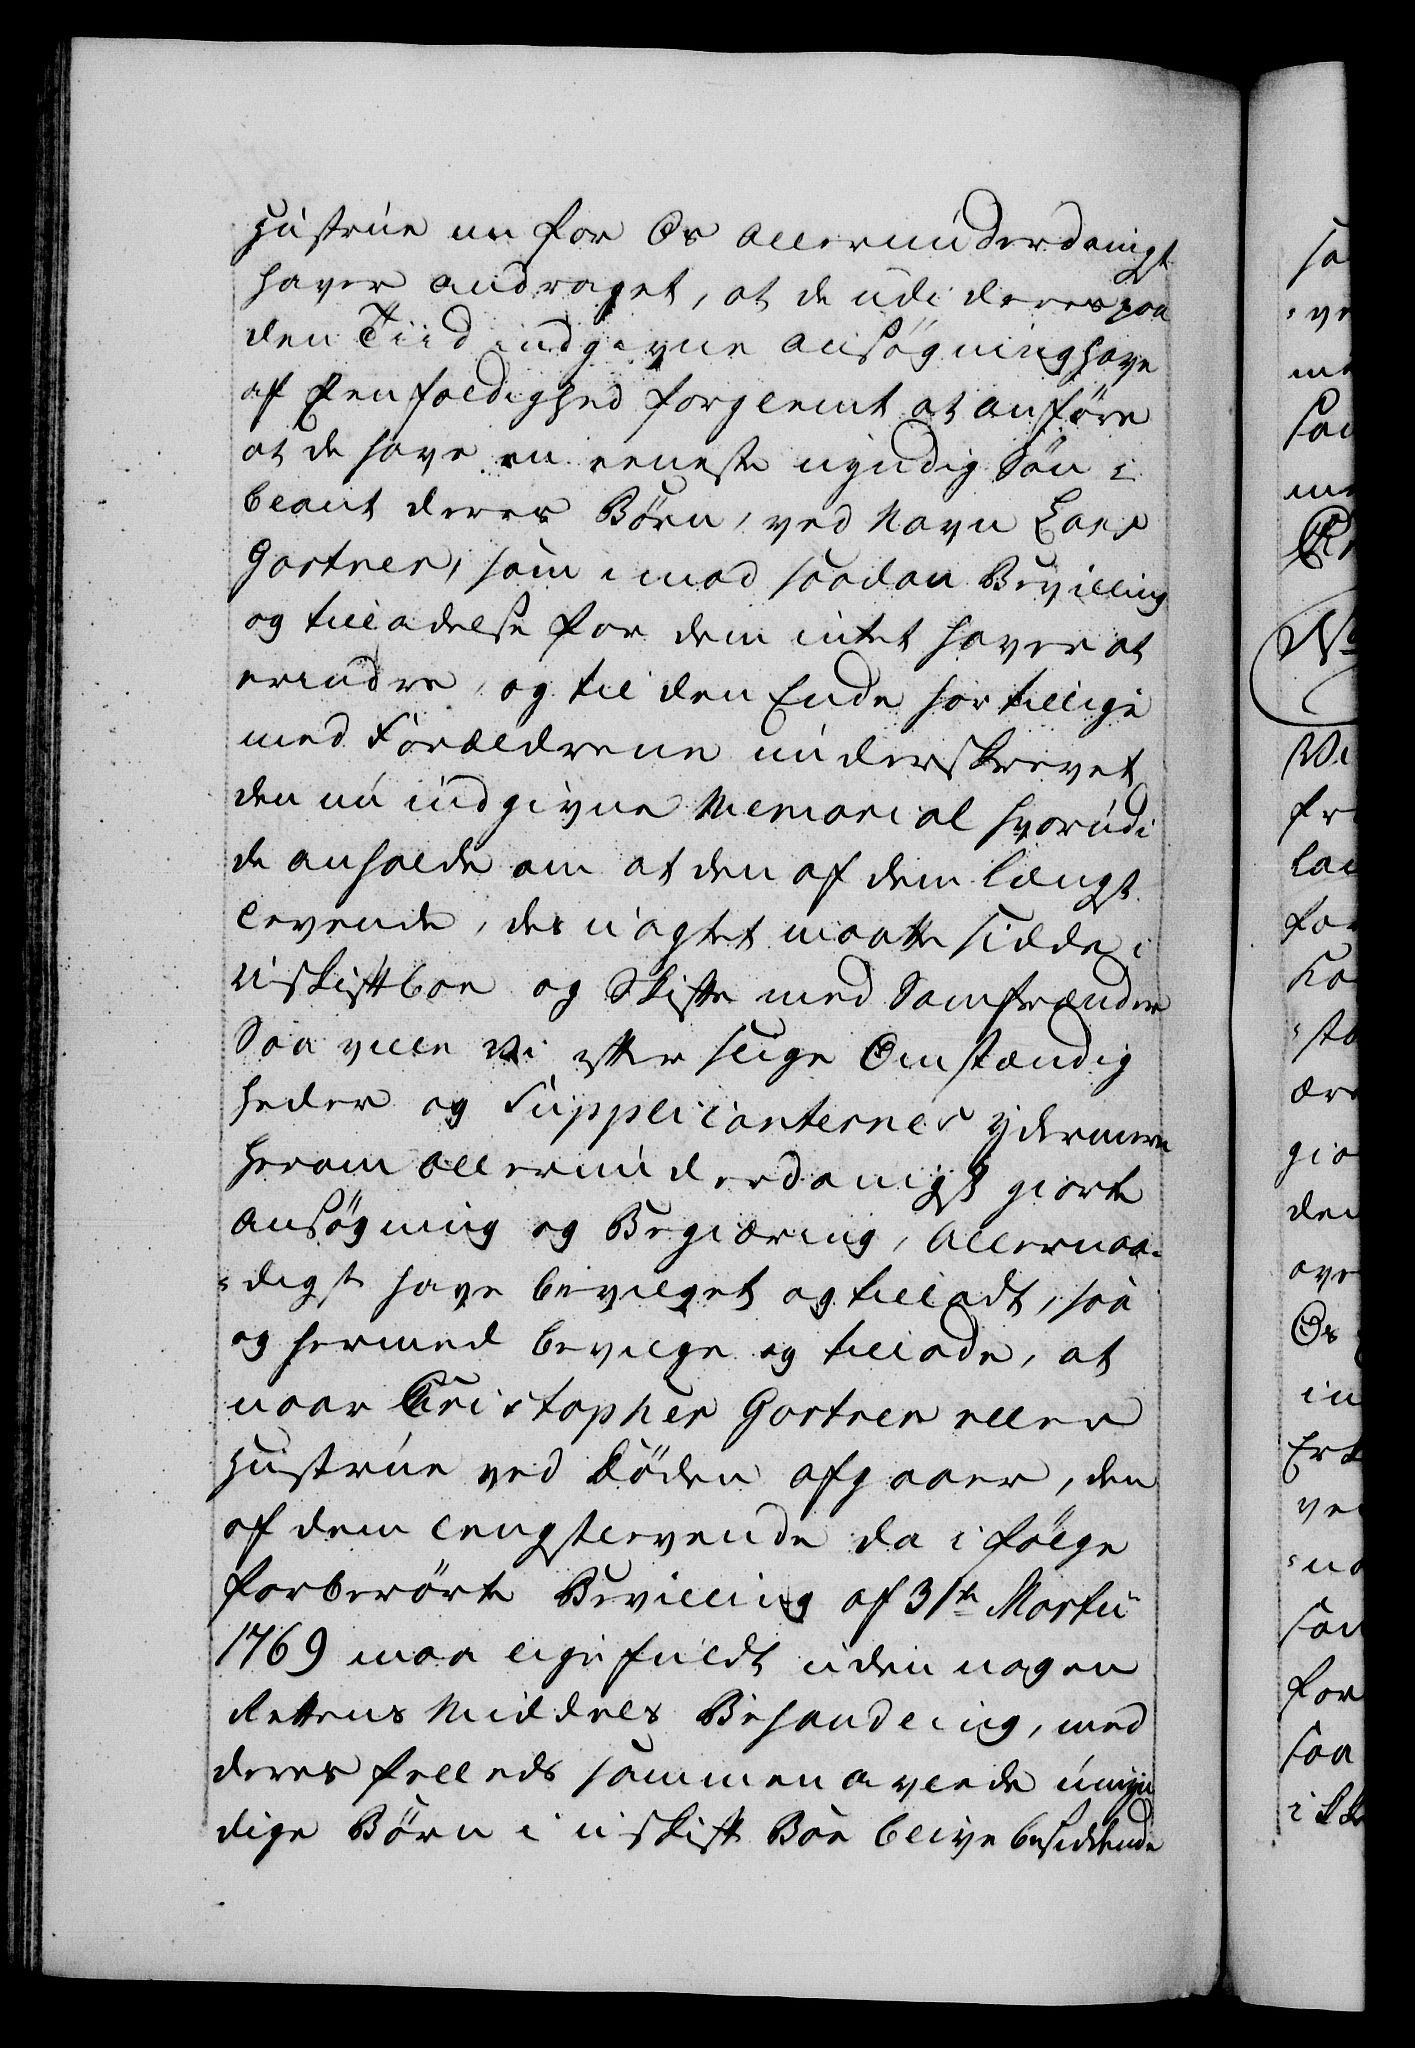 Hustrue nu for Os allerunderdanigst
haver andraget, at de udi deres paa
den Tiid indgivne Ansøgning have
af Eenfoldighed forglemt at anføre
at de have en eeneste myndig Søn i
blant deres Børn, ved Navn Lars
Gartner, som imod saadan Bevilling
og tilladelse for dem intet haver at
erindre, og til den Ende har tillige
med Forældrene underskrevet
den nu indgivne Memorial hvorudi
de anholde om at den af dem længst
levende, des uagtet maatte sidde i
uskiftboe og Skifte med Samfrænder
Saa ville Vi efter slige Omstændig
heder og Supplicanternes ydermere
herom allerunderdanigst giorte
Ansøgning og Begiæring, Allernaa-
-digst have bevilget og tilladt, saa
og hermed bevilge og tillade, at
naar Christopher Gartner eller
Hustrue ved Døden afgaaer, den
af dem lengstlevende da i følge
forberørte Bevilling af 31te Martii
1769 maa ligefuldt uden nogen
Rettens Middels Behandling, med
deres felleds sammen avlede umyn
dige Børn i uskift Boe blive besiddende